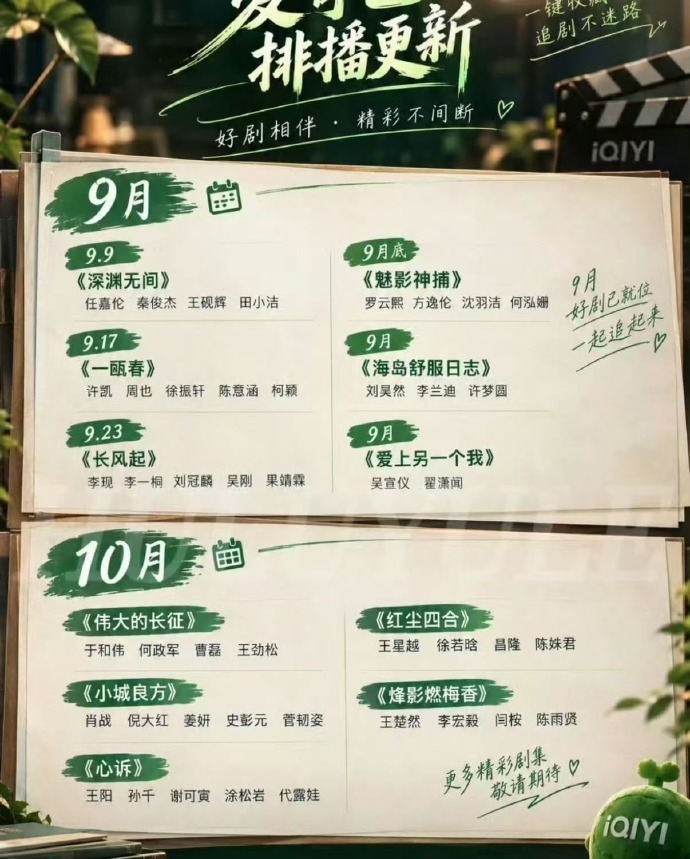 排播更新
追剧不迷路
好剧相伴 · 精彩不间断
iQIYI
9月
9.9
《深渊无间》
任嘉伦 秦俊杰 王砚辉 田小洁
9.17
《一瓯春》
许凯 周也 徐振轩 陈意涵 柯颖
9.23
《长风起》
李现 李一桐 刘冠麟 吴刚 果靖霖
9月底
《魅影神捕》
罗云熙 方逸伦 沈羽洁 何泓姗
9月
《海岛舒服日志》
刘昊然 李兰迪 许梦圆
9月
《爱上另一个我》
吴宣仪 翟潇闻
9月
好剧已就位
一起追起来
10月
《伟大的长征》
于和伟 何政军 曹磊 王劲松
《小城良方》
肖战 倪大红 姜妍 史彭元 菅韧姿
《心诉》
王阳 孙千 谢可寅 涂松岩 代露娃
《红尘四合》
王星越 徐若晗 昌隆 陈姝君
《烽影燃梅香》
王楚然 李宏毅 闫桉 陈雨贤
更多精彩剧集
敬请期待
iQIYI